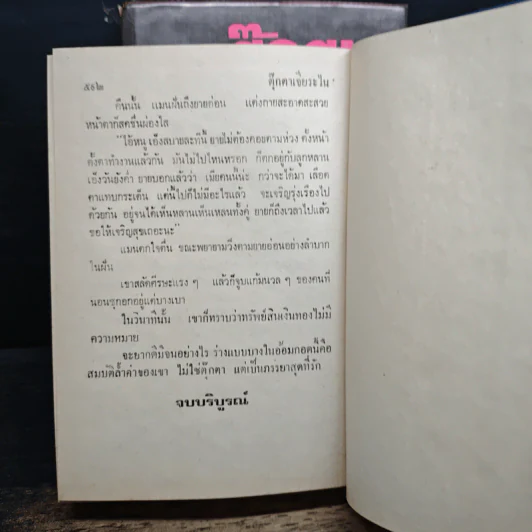 ตุ๊กตา
๕๑๒
ตุ๊กตาเจียระไน
คืนนั้น แมนฝันถึงยายก่อน แต่งกายสะอาดสะสวย
หน้าตาก็สดชื่นผ่องใส
"ไอ้หนู เอ็งสบายละทีนี้ ยายไม่ต้องคอยตามห่วง ตั้งหน้า
ตั้งตาทำงานแล้วกัน มันไม่ไปไหนหรอก ก็ตกอยู่กับลูกหลาน
เอ็งวันยังค่ำ ยายบอกแล้วว่า เมียคนนี้น่ะ กว่าจะได้มา เลือด
ตาแทบกระเด็น แต่นี้ไปก็ไม่มีอะไรแล้ว จะเจริญรุ่งเรืองไป
ด้วยกัน อยู่จนได้เห็นหลานเห็นเหลนทั้งคู่ ยายก็ถึงเวลาไปแล้ว
ขอให้เจริญสุขเถอะนะ"
แมนตกใจตื่น ขณะพยายามวิ่งตามยายอ่อนอย่างลำบาก
ในฝัน
เขาสลัดศีรษะแรง ๆ แล้วก็จูบแก้มนวล ๆ ของคนที่
นอนซุกอกอยู่แต่บางเบา
ในวินาทีนั้น เขาก็ทราบว่าทรัพย์สินเงินทองไม่มี
ความหมาย
จะยากดีมีจนอย่างไร ร่างแบบบางในอ้อมกอดนี้คือ
สมบัติล้ำค่าของเขา ไม่ใช่ตุ๊กตา แต่เป็นภรรยาสุดที่รัก
จบบริบูรณ์